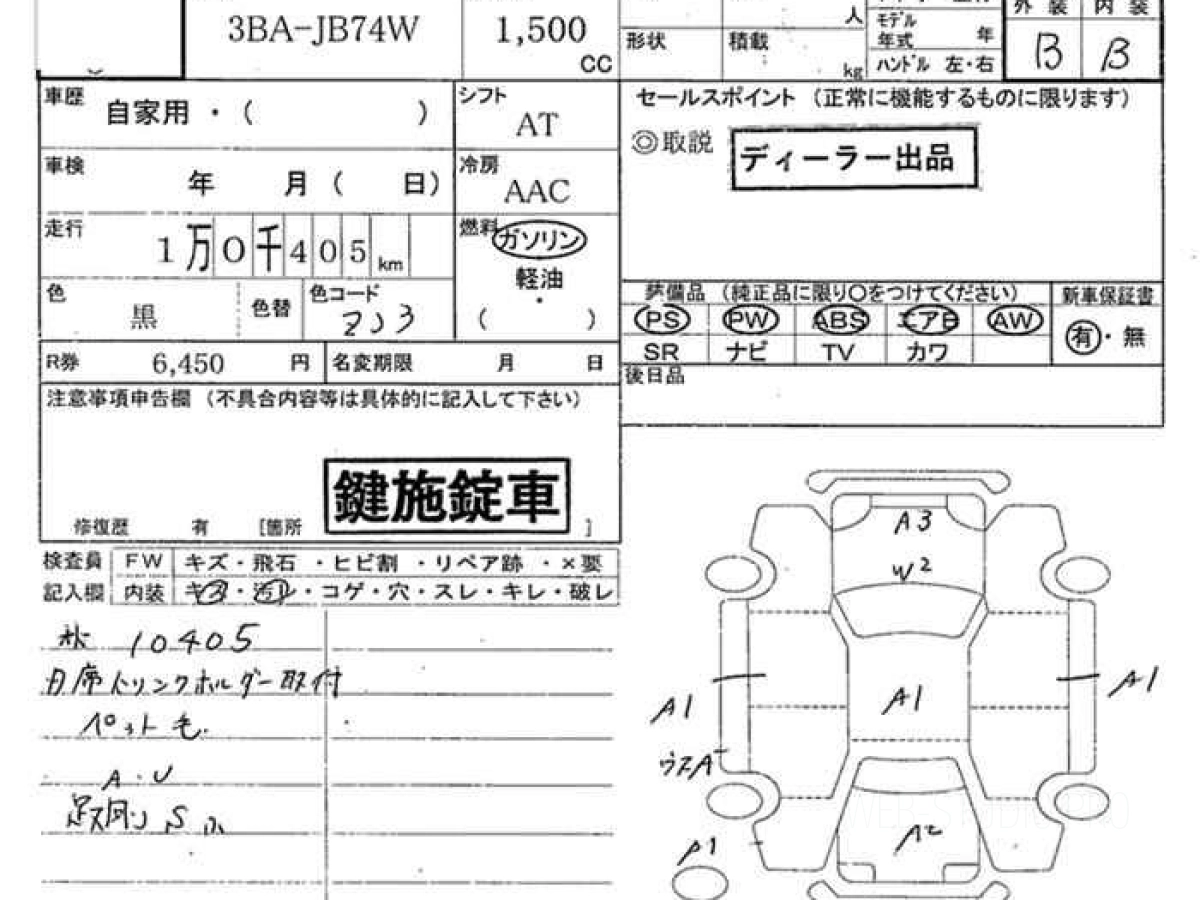 3BA-JB74W
1,500
CC
人
kg
形状
積載
モデル
年式
年
ハンドル 左・右
外装
内装
B
B
車歴
自家用 ・ ( )
シフト
AT
車検
年 月 ( 日)
冷房
AAC
走行
1万0千405km
燃料
ガソリン
軽油
・
( )
色
黒
色替
色コード
ZJ3
R券
6,450
円
名変期限
月
日
セールスポイント (正常に機能するものに限ります)
◎取説
ディーラー出品
装備品 (純正品に限り○をつけてください)
新車保証書
PS PW ABS エアB AW
有・無
SR ナビ TV カワ
後日品
注意事項申告欄 (不具合内容等は具体的に記入して下さい)
鍵施錠車
修復歴 有 [箇所 ]
検査員
記入欄
FW キズ・飛石 ・ヒビ割 ・リペア跡 ・×要
内装 キズ・汚れ・コゲ・穴・スレ・キレ・破レ
10405
席ドリンクホルダー取付
ペット毛.
A・U
S
A3
W2
A1
A1
A1
ウスA
A2
A1